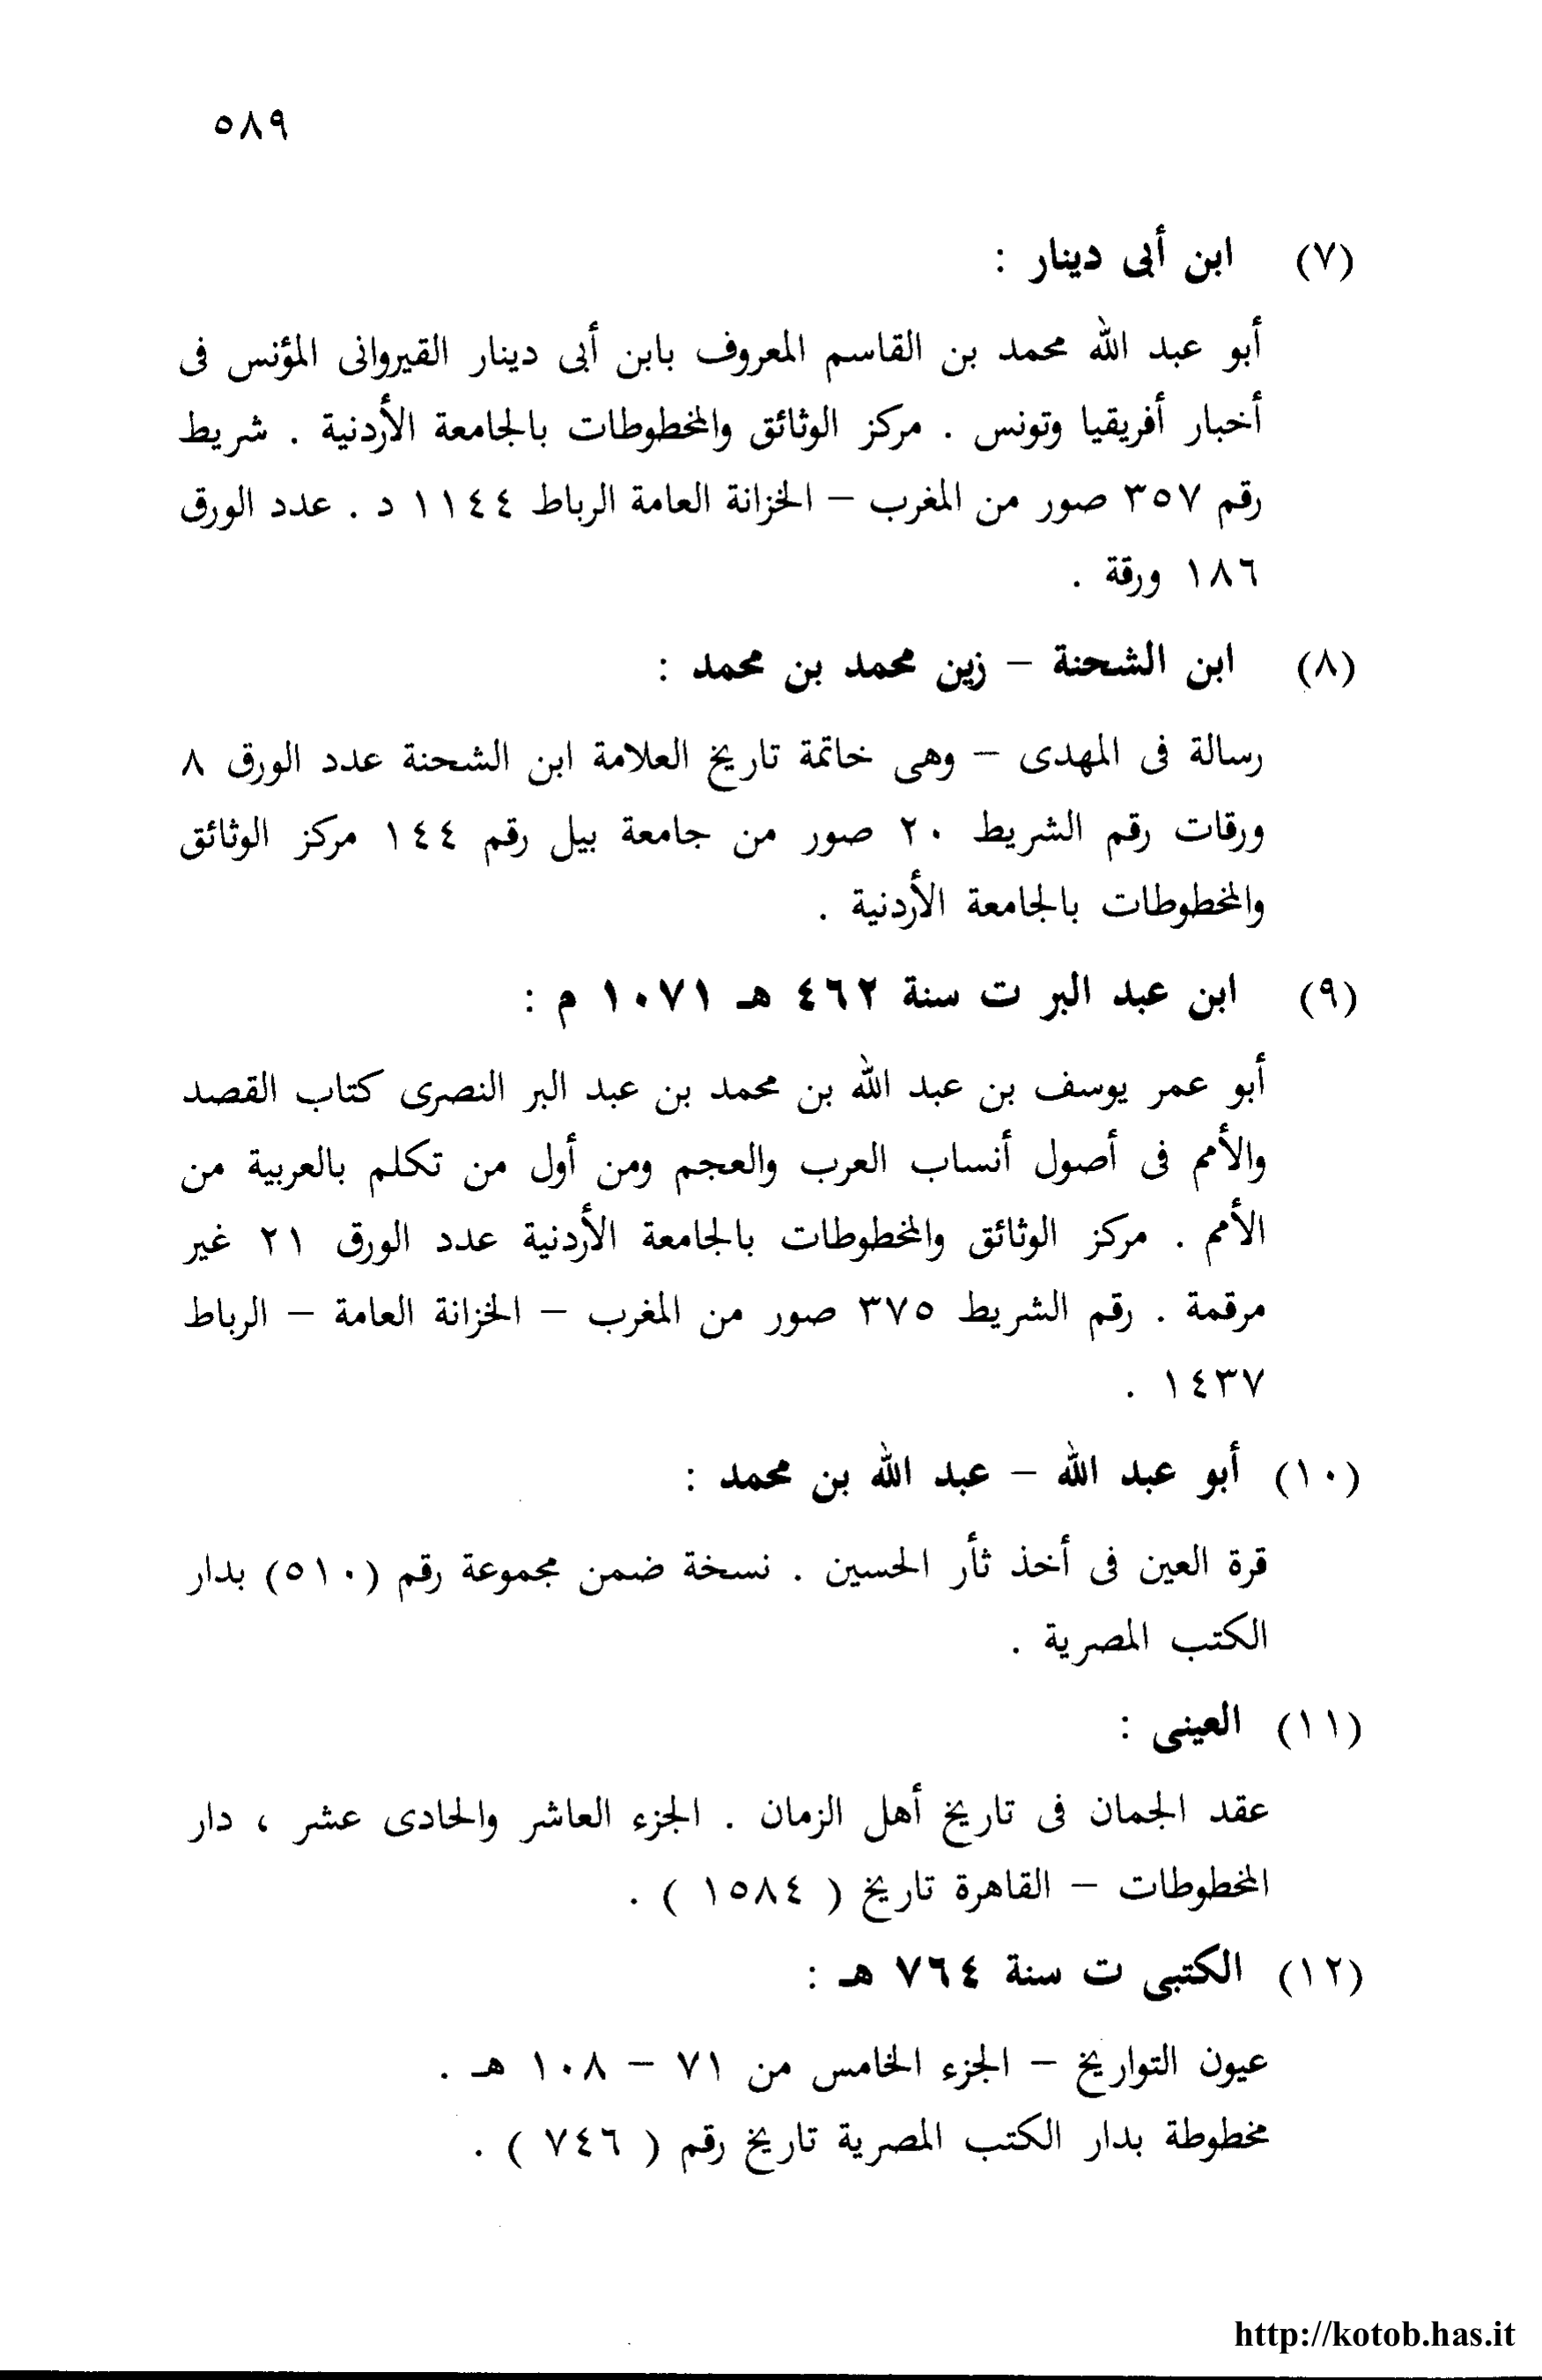 ٥٨٩
(٧) ابن أبى دينار :
أبو عبد الله محمد بن القاسم المعروف بابن أبى دينار القيروانى المؤنس فى
أخبار أفريقيا وتونس . مركز الوثائق والمخطوطات بالجامعة الأردنية . شريط
رقم ٣٥٧ صور من المغرب – الخزانة العامة الرباط ١١٤٤ د . عدد الورق
١٨٦ ورقة .
(٨) ابن الشحنة – زين محمد بن محمد :
رسالة فى المهدى – وهى خاتمة تاريخ العلامة ابن الشحنة عدد الورق ٨
ورقات رقم الشريط ٢٠ صور من جامعة ييل رقم ١٤٤ مركز الوثائق
والمخطوطات بالجامعة الأردنية .
(٩) ابن عبد البر ت سنة ٤٦٢ هـ ١٠٧١ م :
أبو عمر يوسف بن عبد الله بن محمد بن عبد البر النصرى كتاب القصد
والأمم فى أصول أنساب العرب والعجم ومن أول من تكلم بالعربية من
الأمم . مركز الوثائق والمخطوطات بالجامعة الأردنية عدد الورق ٢١ غير
مرقمة . رقم الشريط ٣٧٥ صور من المغرب – الخزانة العامة – الرباط
١٤٣٧ .
(١٠) أبو عبد الله – عبد الله بن محمد :
قرة العين فى أخذ ثأر الحسين . نسخة ضمن مجموعة رقم (٥١٠) بدار
الكتب المصرية .
(١١) العينى :
عقد الجمان فى تاريخ أهل الزمان . الجزء العاشر والحادى عشر ، دار
المخطوطات – القاهرة تاريخ ( ١٥٨٤ ) .
(١٢) الكتبى ت سنة ٧٦٤ هـ :
عيون التواريخ – الجزء الخامس من ٧١ – ١٠٨ هـ .
مخطوطة بدار الكتب المصرية تاريخ رقم ( ٧٤٦ ) .
http://kotob.has.it